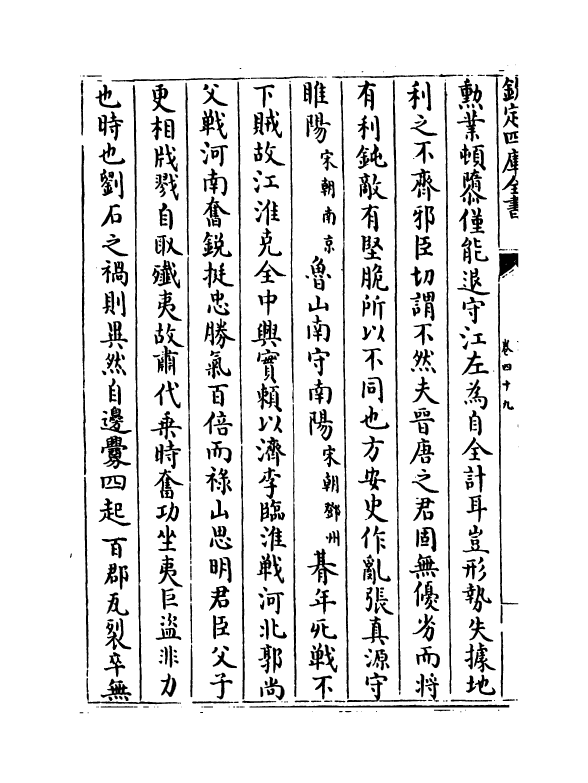 欽定四庫全書
卷四十九
勲業頓隳僅能退守江左為自全計耳豈形勢失據地
利之不齊邪臣切謂不然夫晉唐之君固無優劣而將
有利鈍敵有堅脆所以不同也方安史作亂張真源守
睢陽宋朝南京魯山南守南陽宋朝鄧州朞年死戰不
下賊故江淮克全中興實頼以濟李臨淮戰河北郭尚
父戰河南奮鋭挺忠勝氣百倍而祿山思明君臣父子
更相戕戮自取殱夷故肅代乗時奮功坐夷巨盗非力
也時也劉石之禍則異然自邊釁四起百郡瓦裂卒無